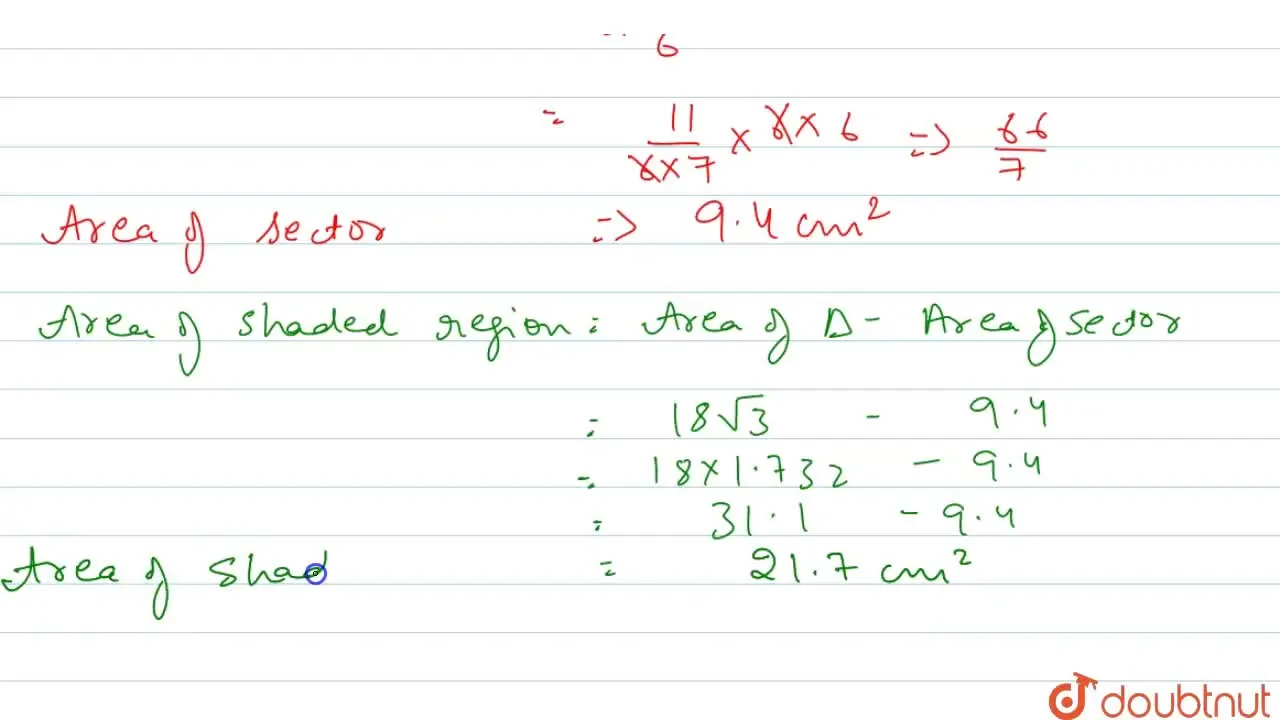 6
= 11/(6×7) × 6 × 6 => 66/7
Area of sector => 9.4 cm²
Area of shaded region = Area of Δ - Area of sector
= 18√3 - 9.4
= 18×1.732 - 9.4
= 31.1 - 9.4
Area of Shad = 21.7 cm²
doubtnut